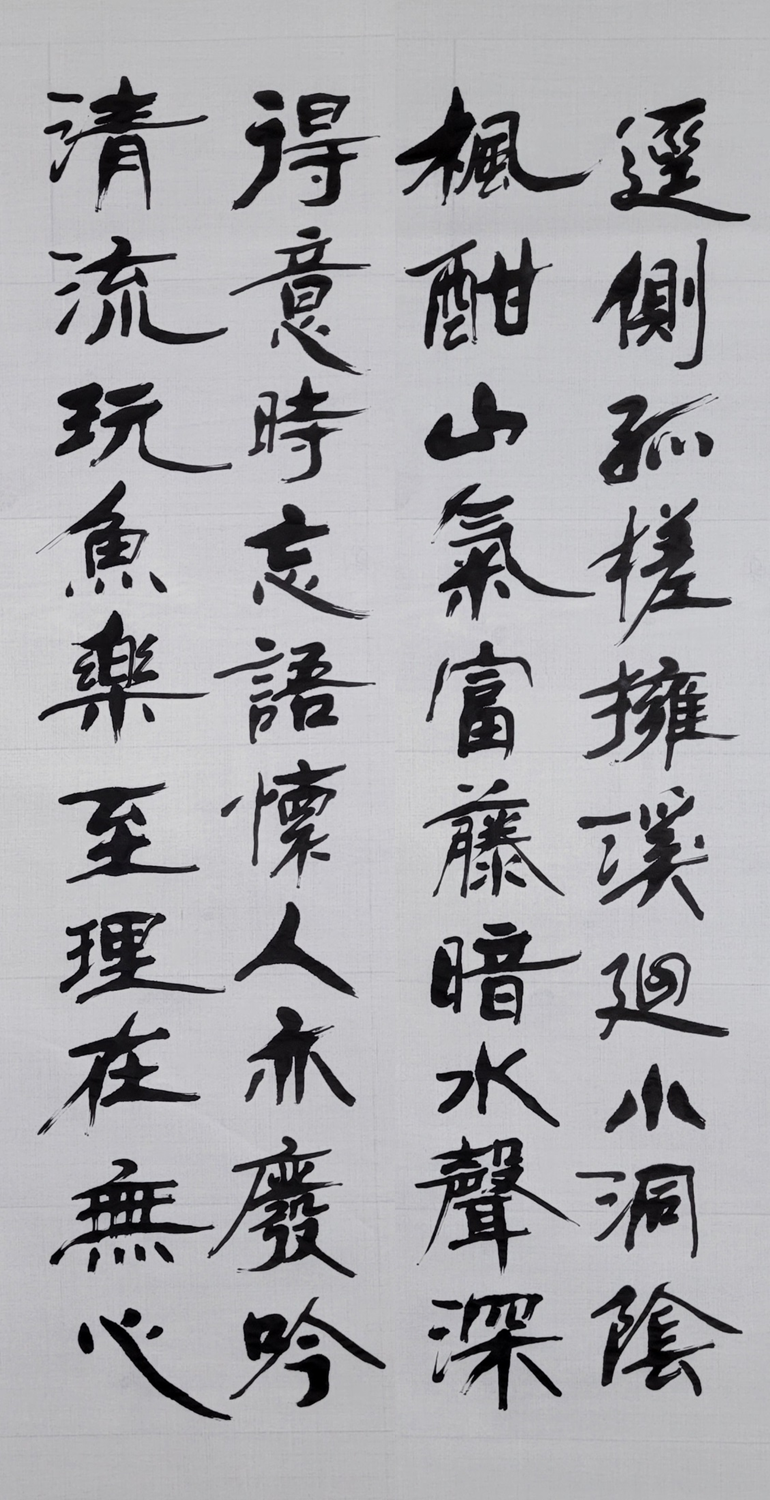 逕側孤槎擁溪廻小洞陰
楓酣山氣富藤暗水聲深
得意時忘語懷人亦廢吟
清流玩魚樂至理在無心